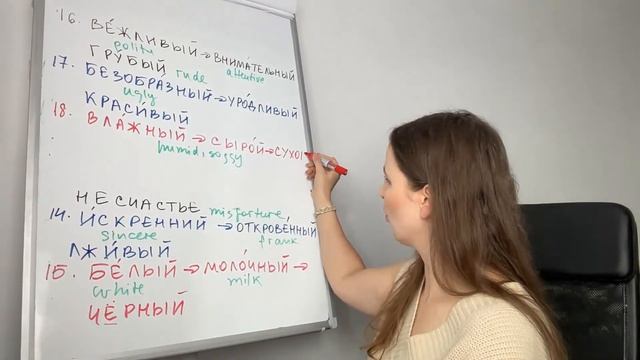 16. ВЕ́ЖЛИВЫЙ → ВНИМА́ТЕЛЬНЫЙ
polite attentive
ГРУ́БЫЙ rude
17. БЕЗОБРА́ЗНЫЙ → УРО́ДЛИВЫЙ
ugly
КРАСИ́ВЫЙ
18. ВЛА́ЖНЫЙ → СЫРО́Й → СУХО
humid, soggy
НЕСЧАСТЬЕ misfortune,
14. И́СКРЕННИЙ → ОТКРОВЕ́ННЫЙ
sincere frank
ЛЖИ́ВЫЙ
15. БЕ́ЛЫЙ → МОЛО́ЧНЫЙ →
white milk
ЧЁРНЫЙ